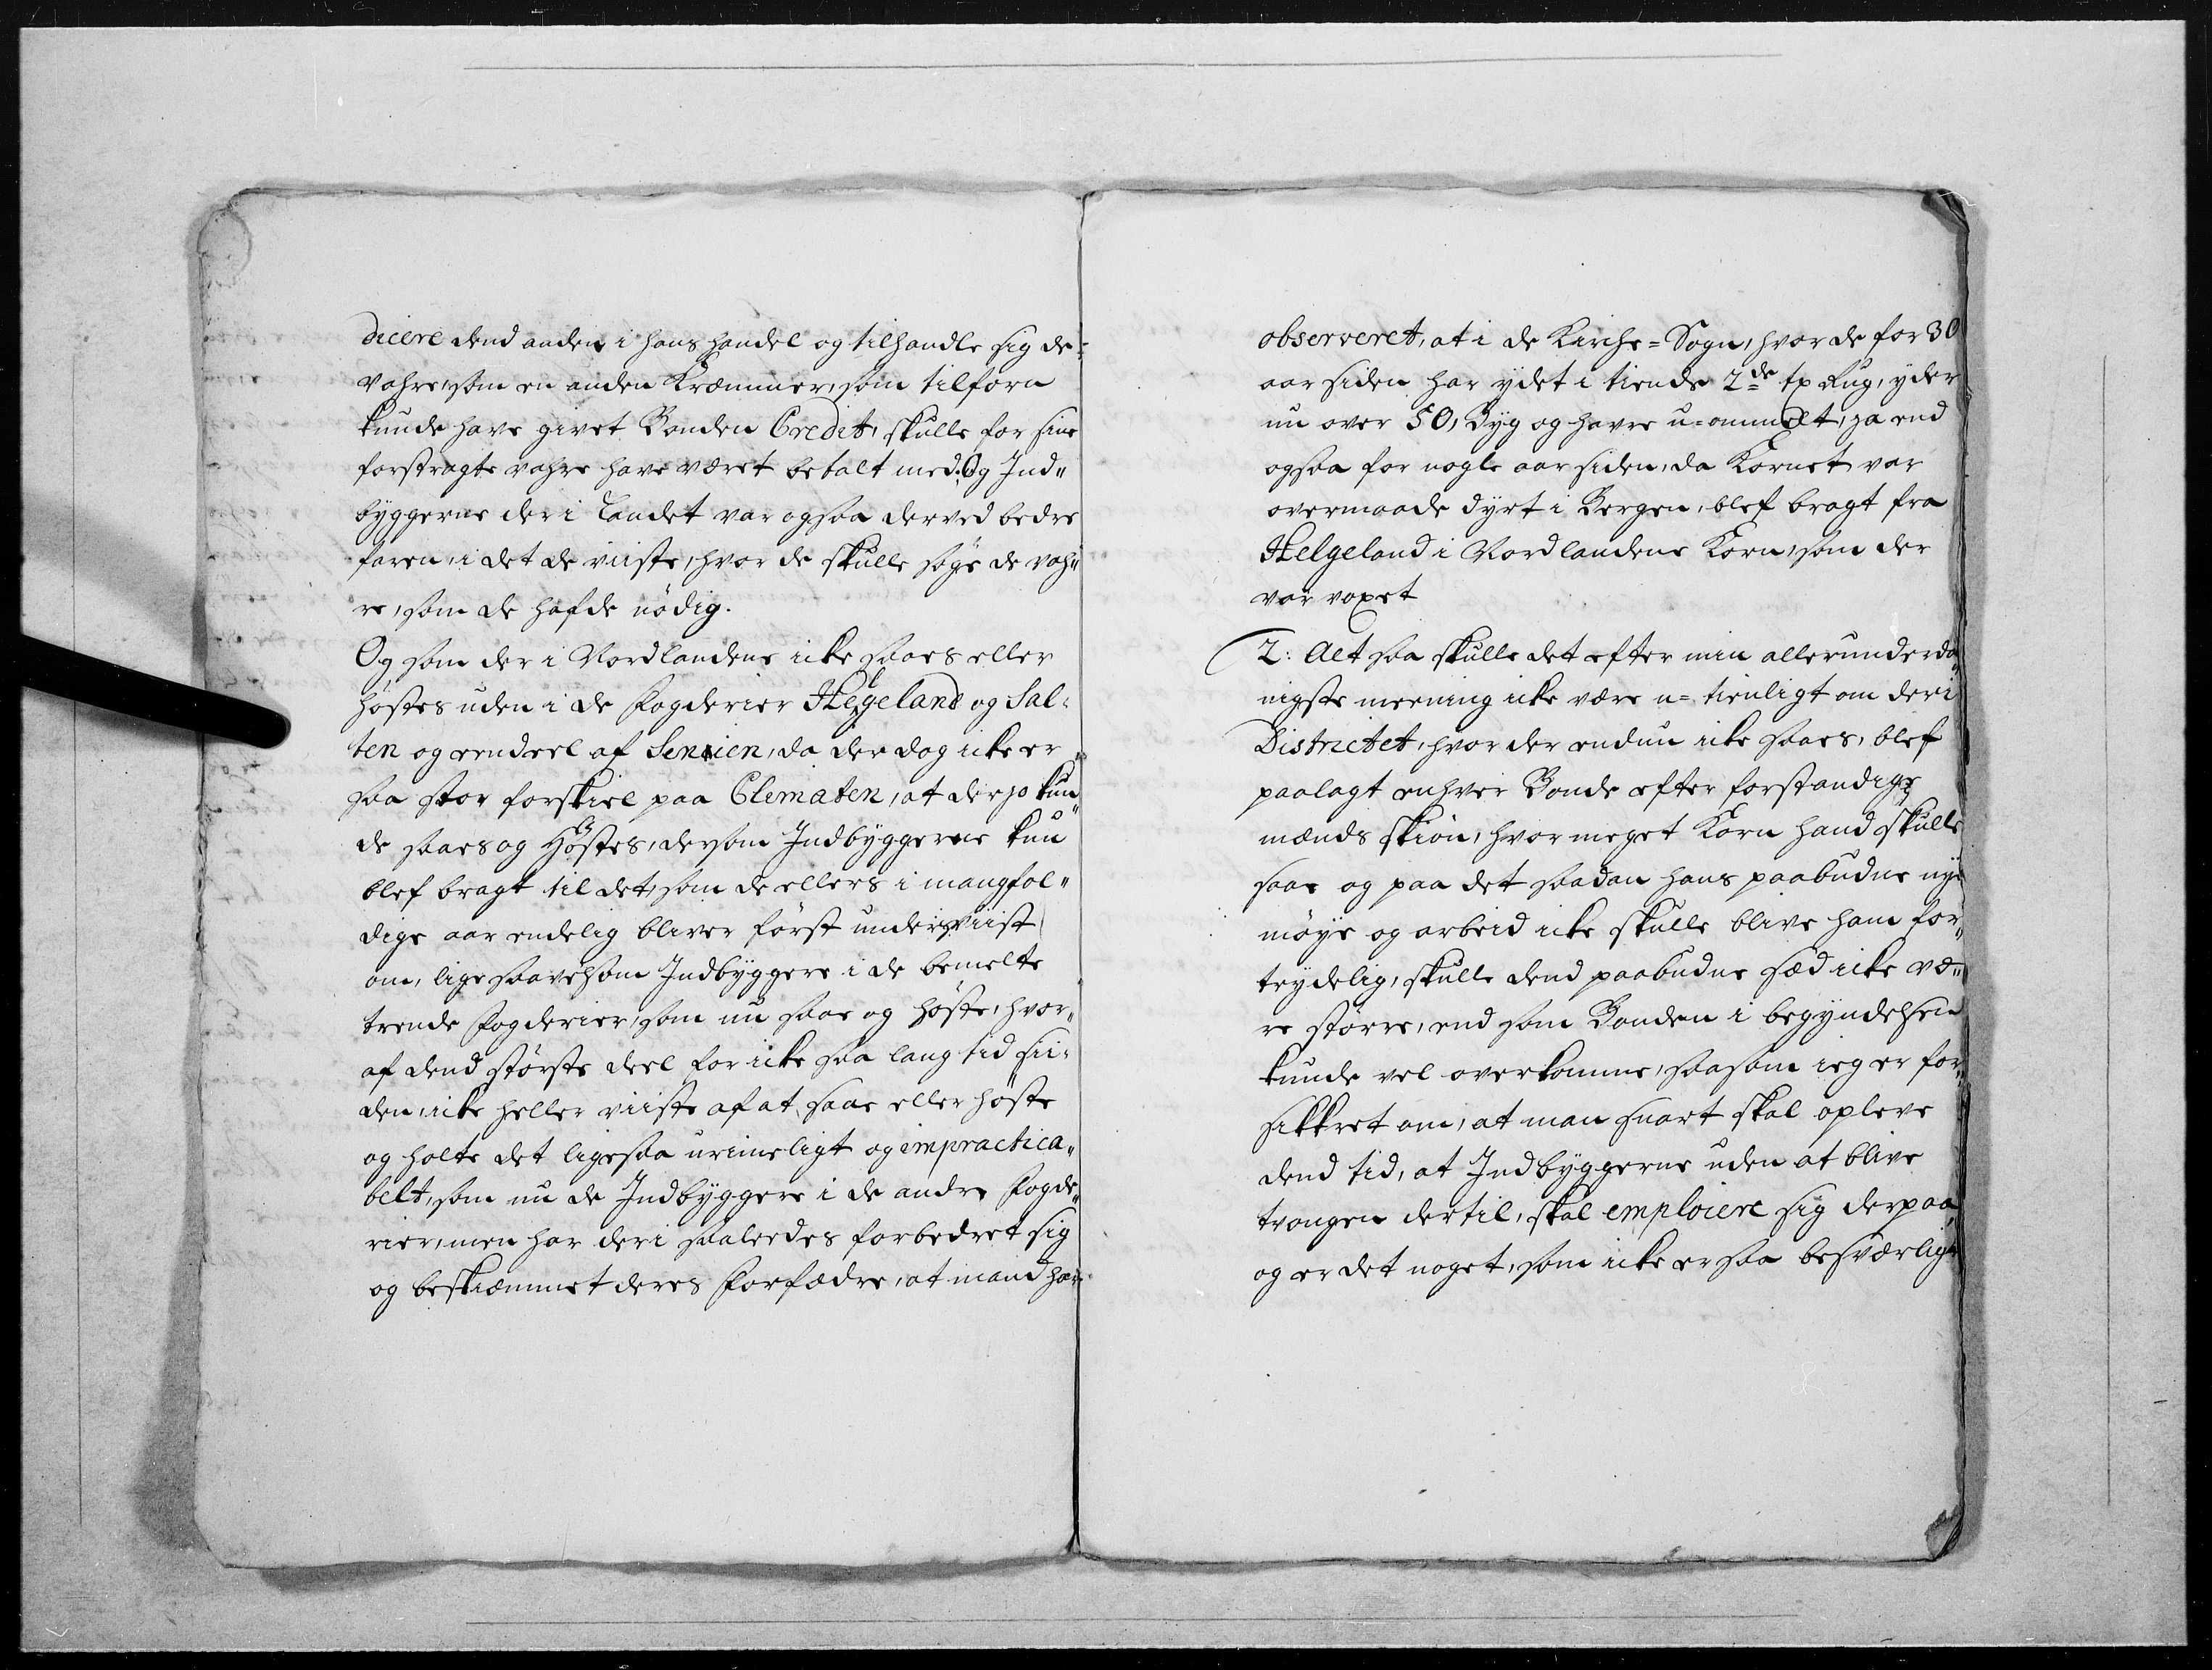 dicere dend anden i hans handel og tilhandle sig de
vahre, som en anden Kræmmer, som tilforn
kunde have givet Bonden Credit, skulle for sine
forstragte vahre have været betalt med. Og Ind„
byggerne der i Landet var ogsaa derved bedre
faren, i det de viiste, hvor de skulle søge de vah„
re, som de hafde nödig.
Og som der i Nordlandene icke saaes eller
höstes uden i de Fogderier Helgeland og Sal„
ten og eendeel af Senien, da der dog icke er
saa stor forskiel paa Clematen, at der jo kun„
de saaes og Höstes, dersom Indbyggerne kun
blef bragt til det, som de ellers i mangfol„
dige aar endelig bliver först underviist
om, lige saavelsom Indbyggere i de bemelte
trende Fogderier, som nu saae og höste, hvor„
af dend störste deel for icke saa lang tid sii„
den, icke heller viiste af at saae eller höste
og holte det ligesaa urimeligt og impractica„
belt, som nu de Indbyggere i de andre Fogde„
rier, men har deri saaledes forbedret sig
og beskiæmmet deres Forfædre, at mand har
observeret, at i de Kirche=Sogn, hvor de for 30
aar siden har ydet i tiende 2de tp Rug, yder
nu over 50, Byg og havre u=ommelt, ja end
ogsaa for nogle aar siden, da Kornet var
overmaade dyrt i Bergen, blef bragt fra
Helgeland i Nordlandene Korn, som der
var voxet
2: Alt saa skulle det efter min allerunderda„
nigste meening icke være u=tienligt om der i
Districtet, hvor der endnu icke saaes, blef
paalagt enhver Bonde efter forstandige
mænds skiön, hvor meget Korn hand skulle
saae og paa det saadan hans paabudne nye
möye og arbeid icke skulle blive ham for„
trydelig, skulle dend paabudne sæd icke væ„
re större, end som Bonden i begyndelsen
kunde vel overkomme, saasom ieg er for„
sikkret om, at man snart skal opleve
dend tid, at Indbyggerne uden at blive
trongen dertil, skal emploiere sig derpaa,
og er det noget, som icke er saa besværligt